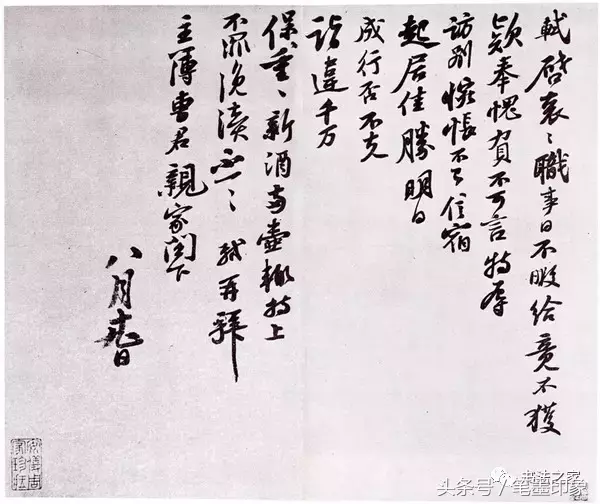 軾啓袞〻職事日不暇給竟不獲
款奉愧負不可言特辱
訪別惋悵不已信宿
起居佳勝明日
成行否不克
詣違千万
保重〻新酒兩壺輒持上
不罪浼瀆不一〻軾再拜
主簿曹君親家閤下
八月日
书法之家
头条号/笔墨印象